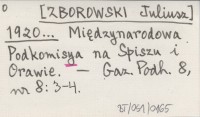 o
[ZBOROWSKI Juliusz]
1920... Międzynarodowa
Podkomisya na Spiszu i
Orawie. — Gaz. Podh. 8,
nr 8: 3-4.
BJ/091/0165